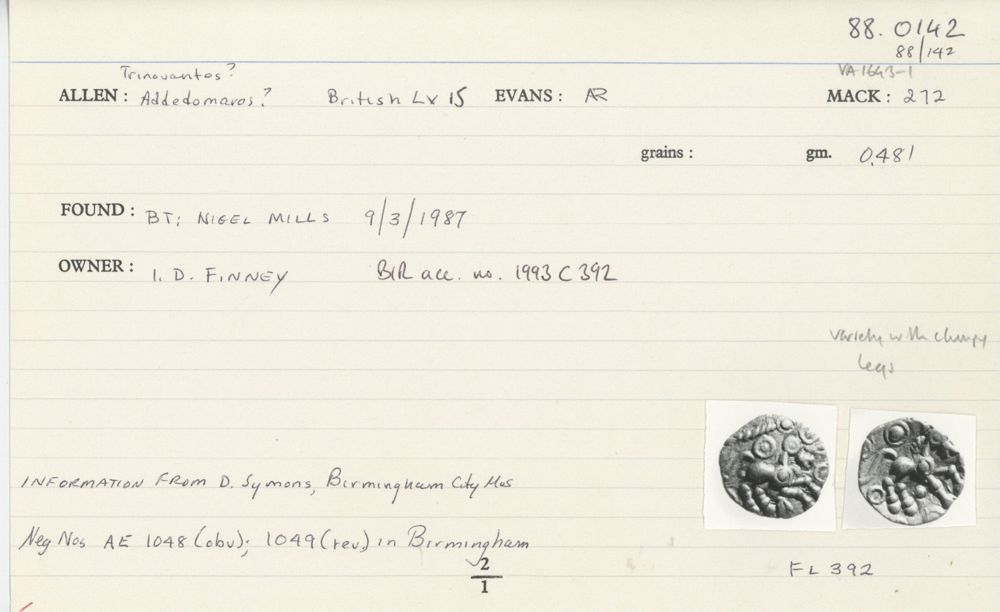 88. 0142
88/142
VA 1643-1
Trinovantes?
ALLEN: Addedomaros? British Lx 15 EVANS: AR MACK: 272
grains: gm. 0.481
FOUND: BT; NIGEL MILLS 9/3/1987
OWNER: I. D. FINNEY BIR acc. no. 1993 C 392
variety with clumpy
legs
INFORMATION FROM D. Symons, Birmingham City Mus
Neg Nos AE 1048 (obv); 1049 (rev) in Birmingham
2
1
FL 392